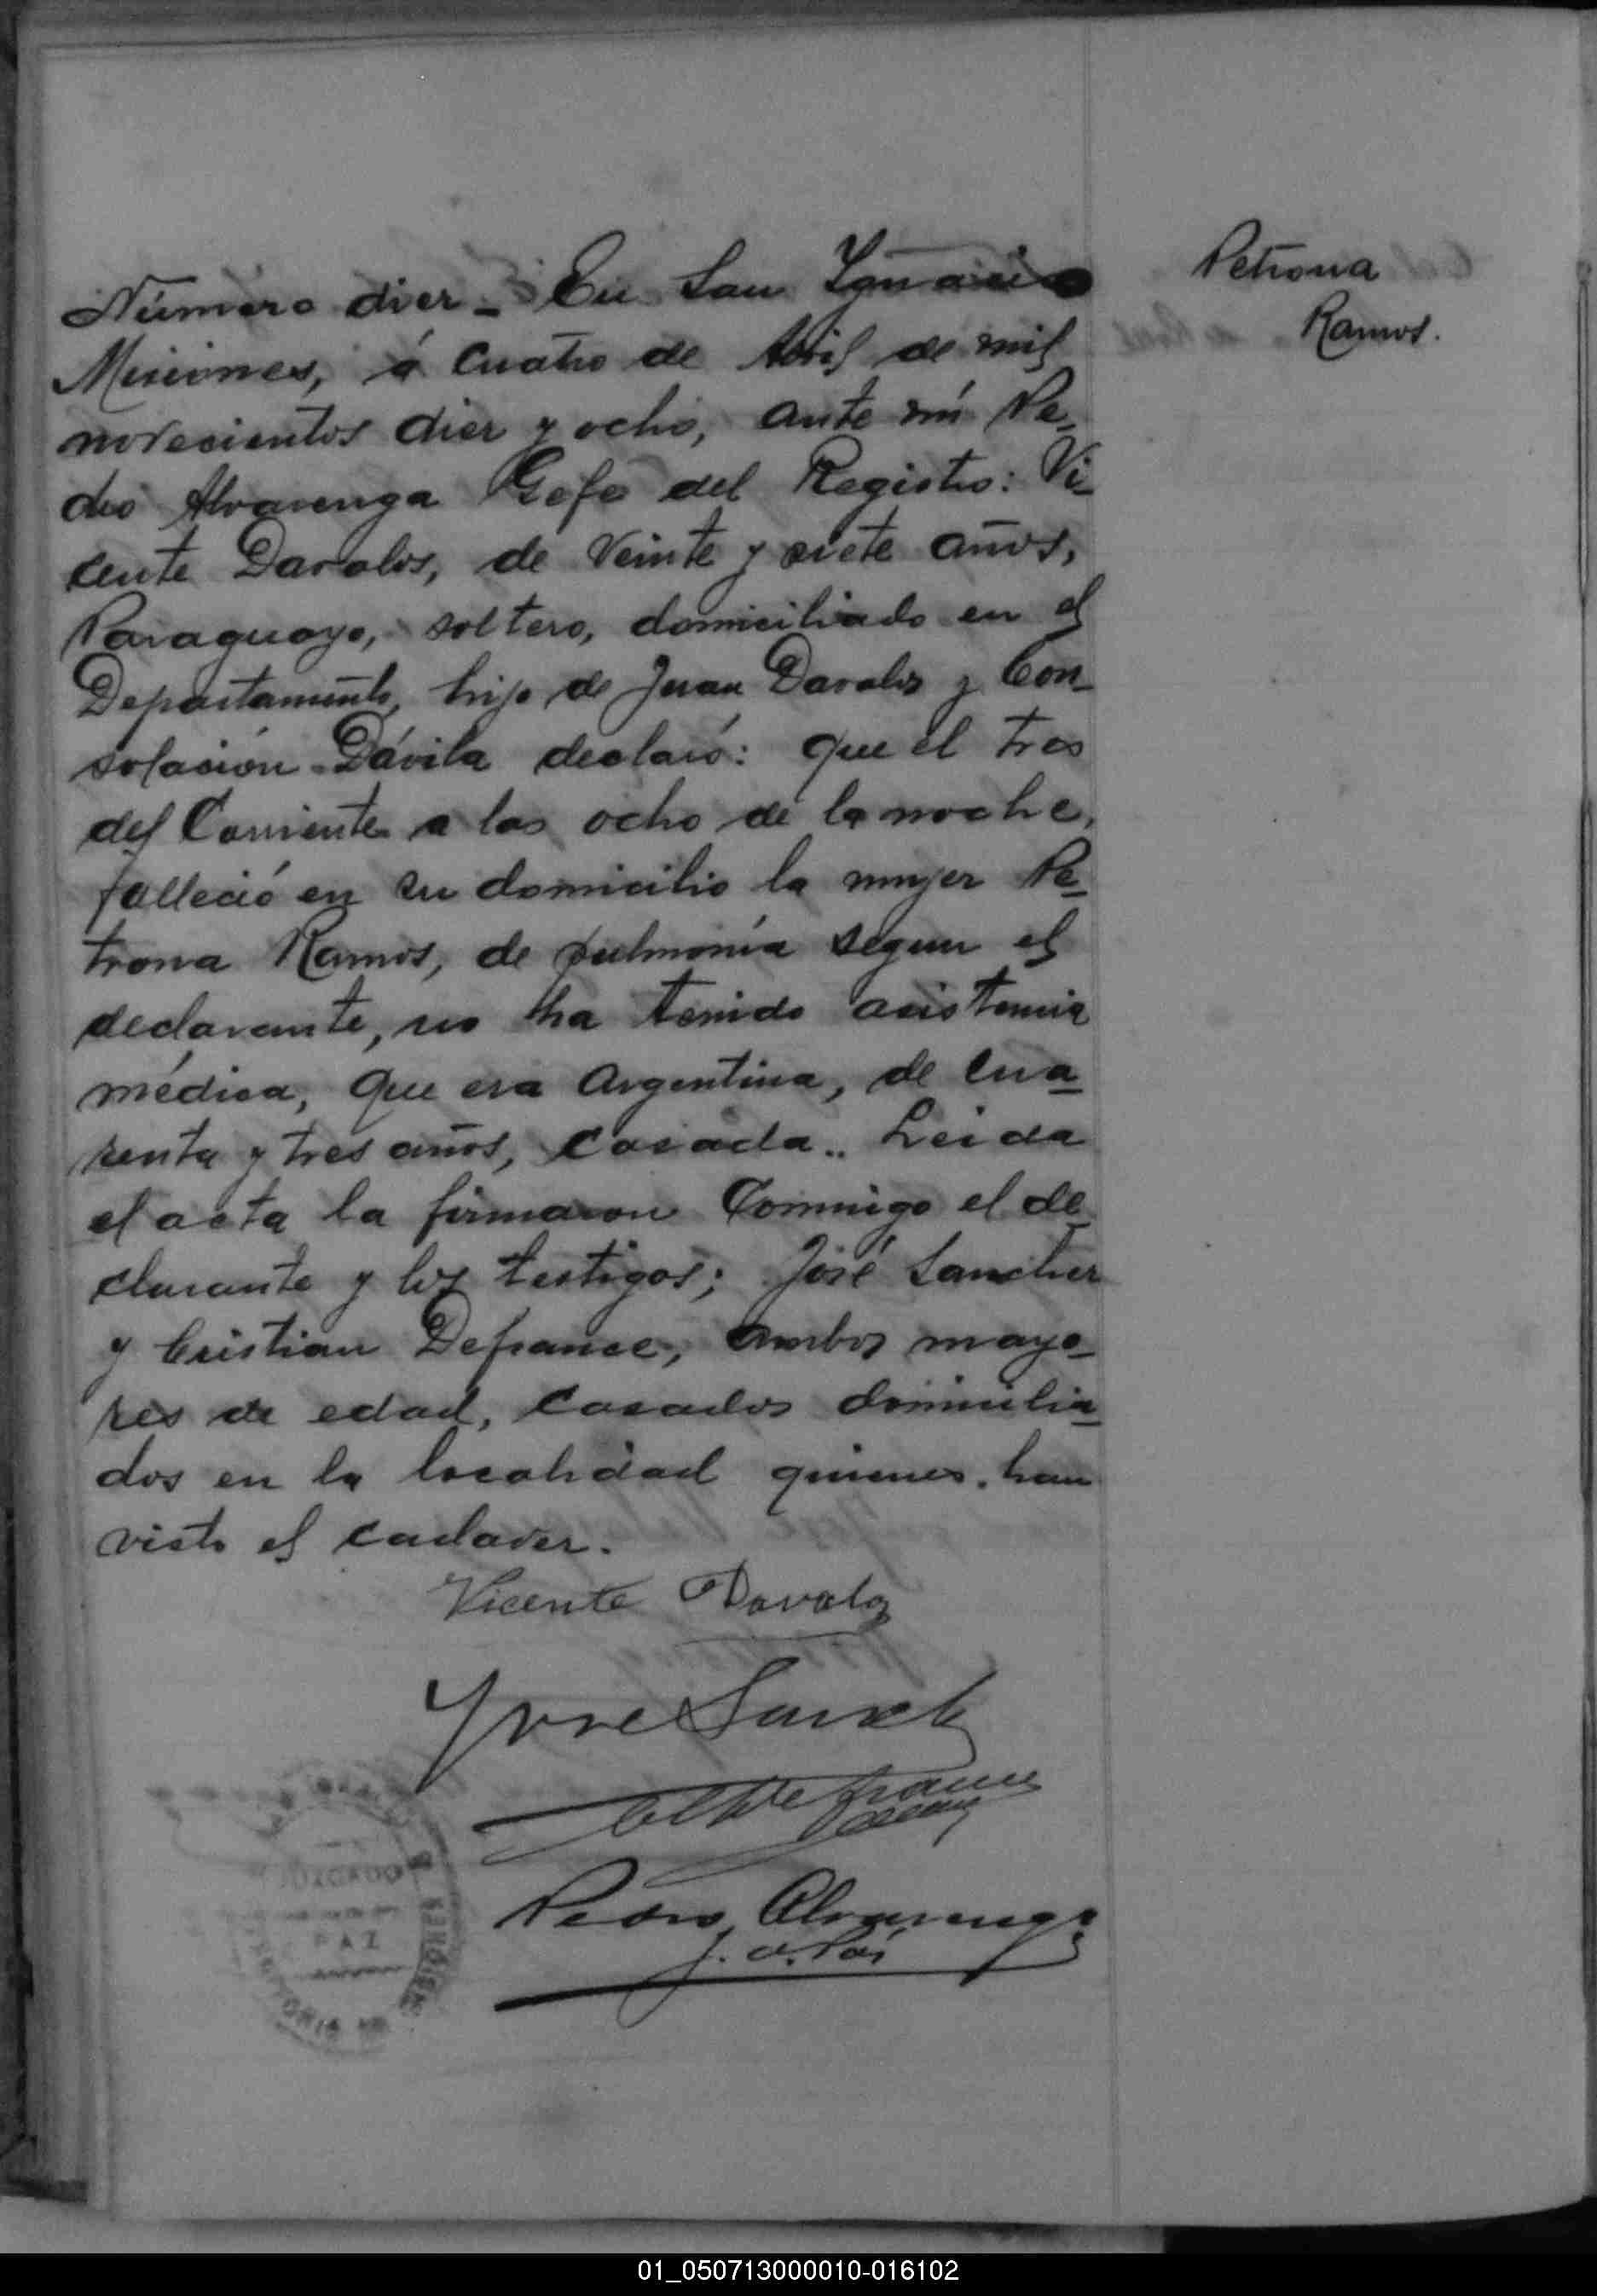 Petrona
Ramos.
Número diez - En San Ygnacio
Misiones, á cuatro de Abril de mil
novecientos diez y ocho, ante mí Pe-
dro Alvarenga Gefe del Registro: Vi-
cente Davalos, de Veinte y siete años,
Paraguayo, soltero, domiciliado en el
Departamento, hijo de Juan Davalos y Con-
solación Dávila declaró: que el tres
del Corriente a las ocho de la noche,
falleció en su domicilio la mujer Pe-
trona Ramos, de pulmonía segun el
declarante, no ha tenido asistencia
médica, que era Argentina, de cua-
renta y tres años, casada.. Leida
el acta la firmaron Conmigo el de-
clarante y los testigos; José Sanchez
y Cristian Defrance, ambos mayo-
res de edad, casados domicilia-
dos en la localidad quienes han
visto el cadaver.
Vicente Davalos
Defrance
Pedro Alvarenga
J. d. Paz
JUZGADO
PAZ
MISIONES
01_050713000010-016102